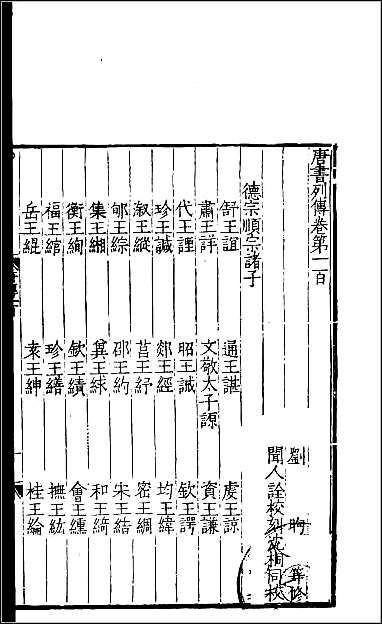 唐書列傳卷第一百
劉昫 等修
聞人詮校刻沈桐同校
德宗順宗諸子
舒王誼 通王諶 虔王諒
肅王詳 文敬太子謜 資王謙
代王諲 昭王誡 欽王諤
珍王諴 郯王經 均王緯
漵王縱 莒王紓 密王綢
郇王綜 邵王約 宋王結
集王緗 冀王絿 和王綺
衡王絢 欽王績 會王纁
福王綰 珍王繕 撫王紘
岳王緄 袁王紳 桂王綸